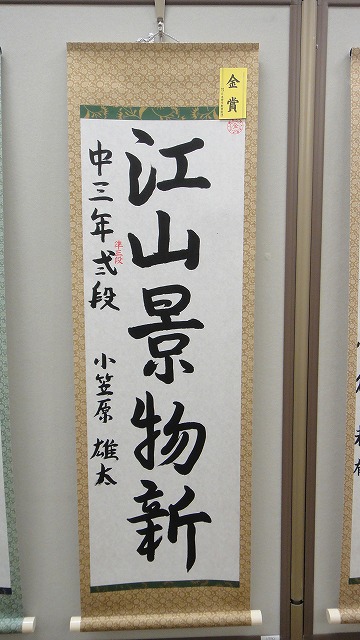 金賞
江山景物新
中三年弐段 小笠原 雄太
準五段